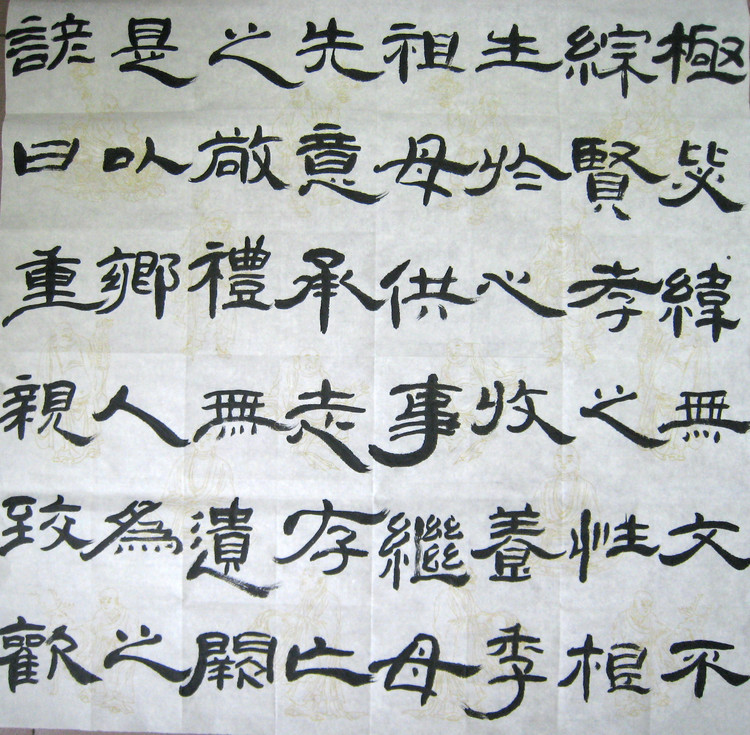 極毖緯無文不
綜賢孝之性根
生於心收養季
祖母供事繼母
先意承志存亡
之敬禮無遺闕
是以鄉人為之
諺曰重親致歡